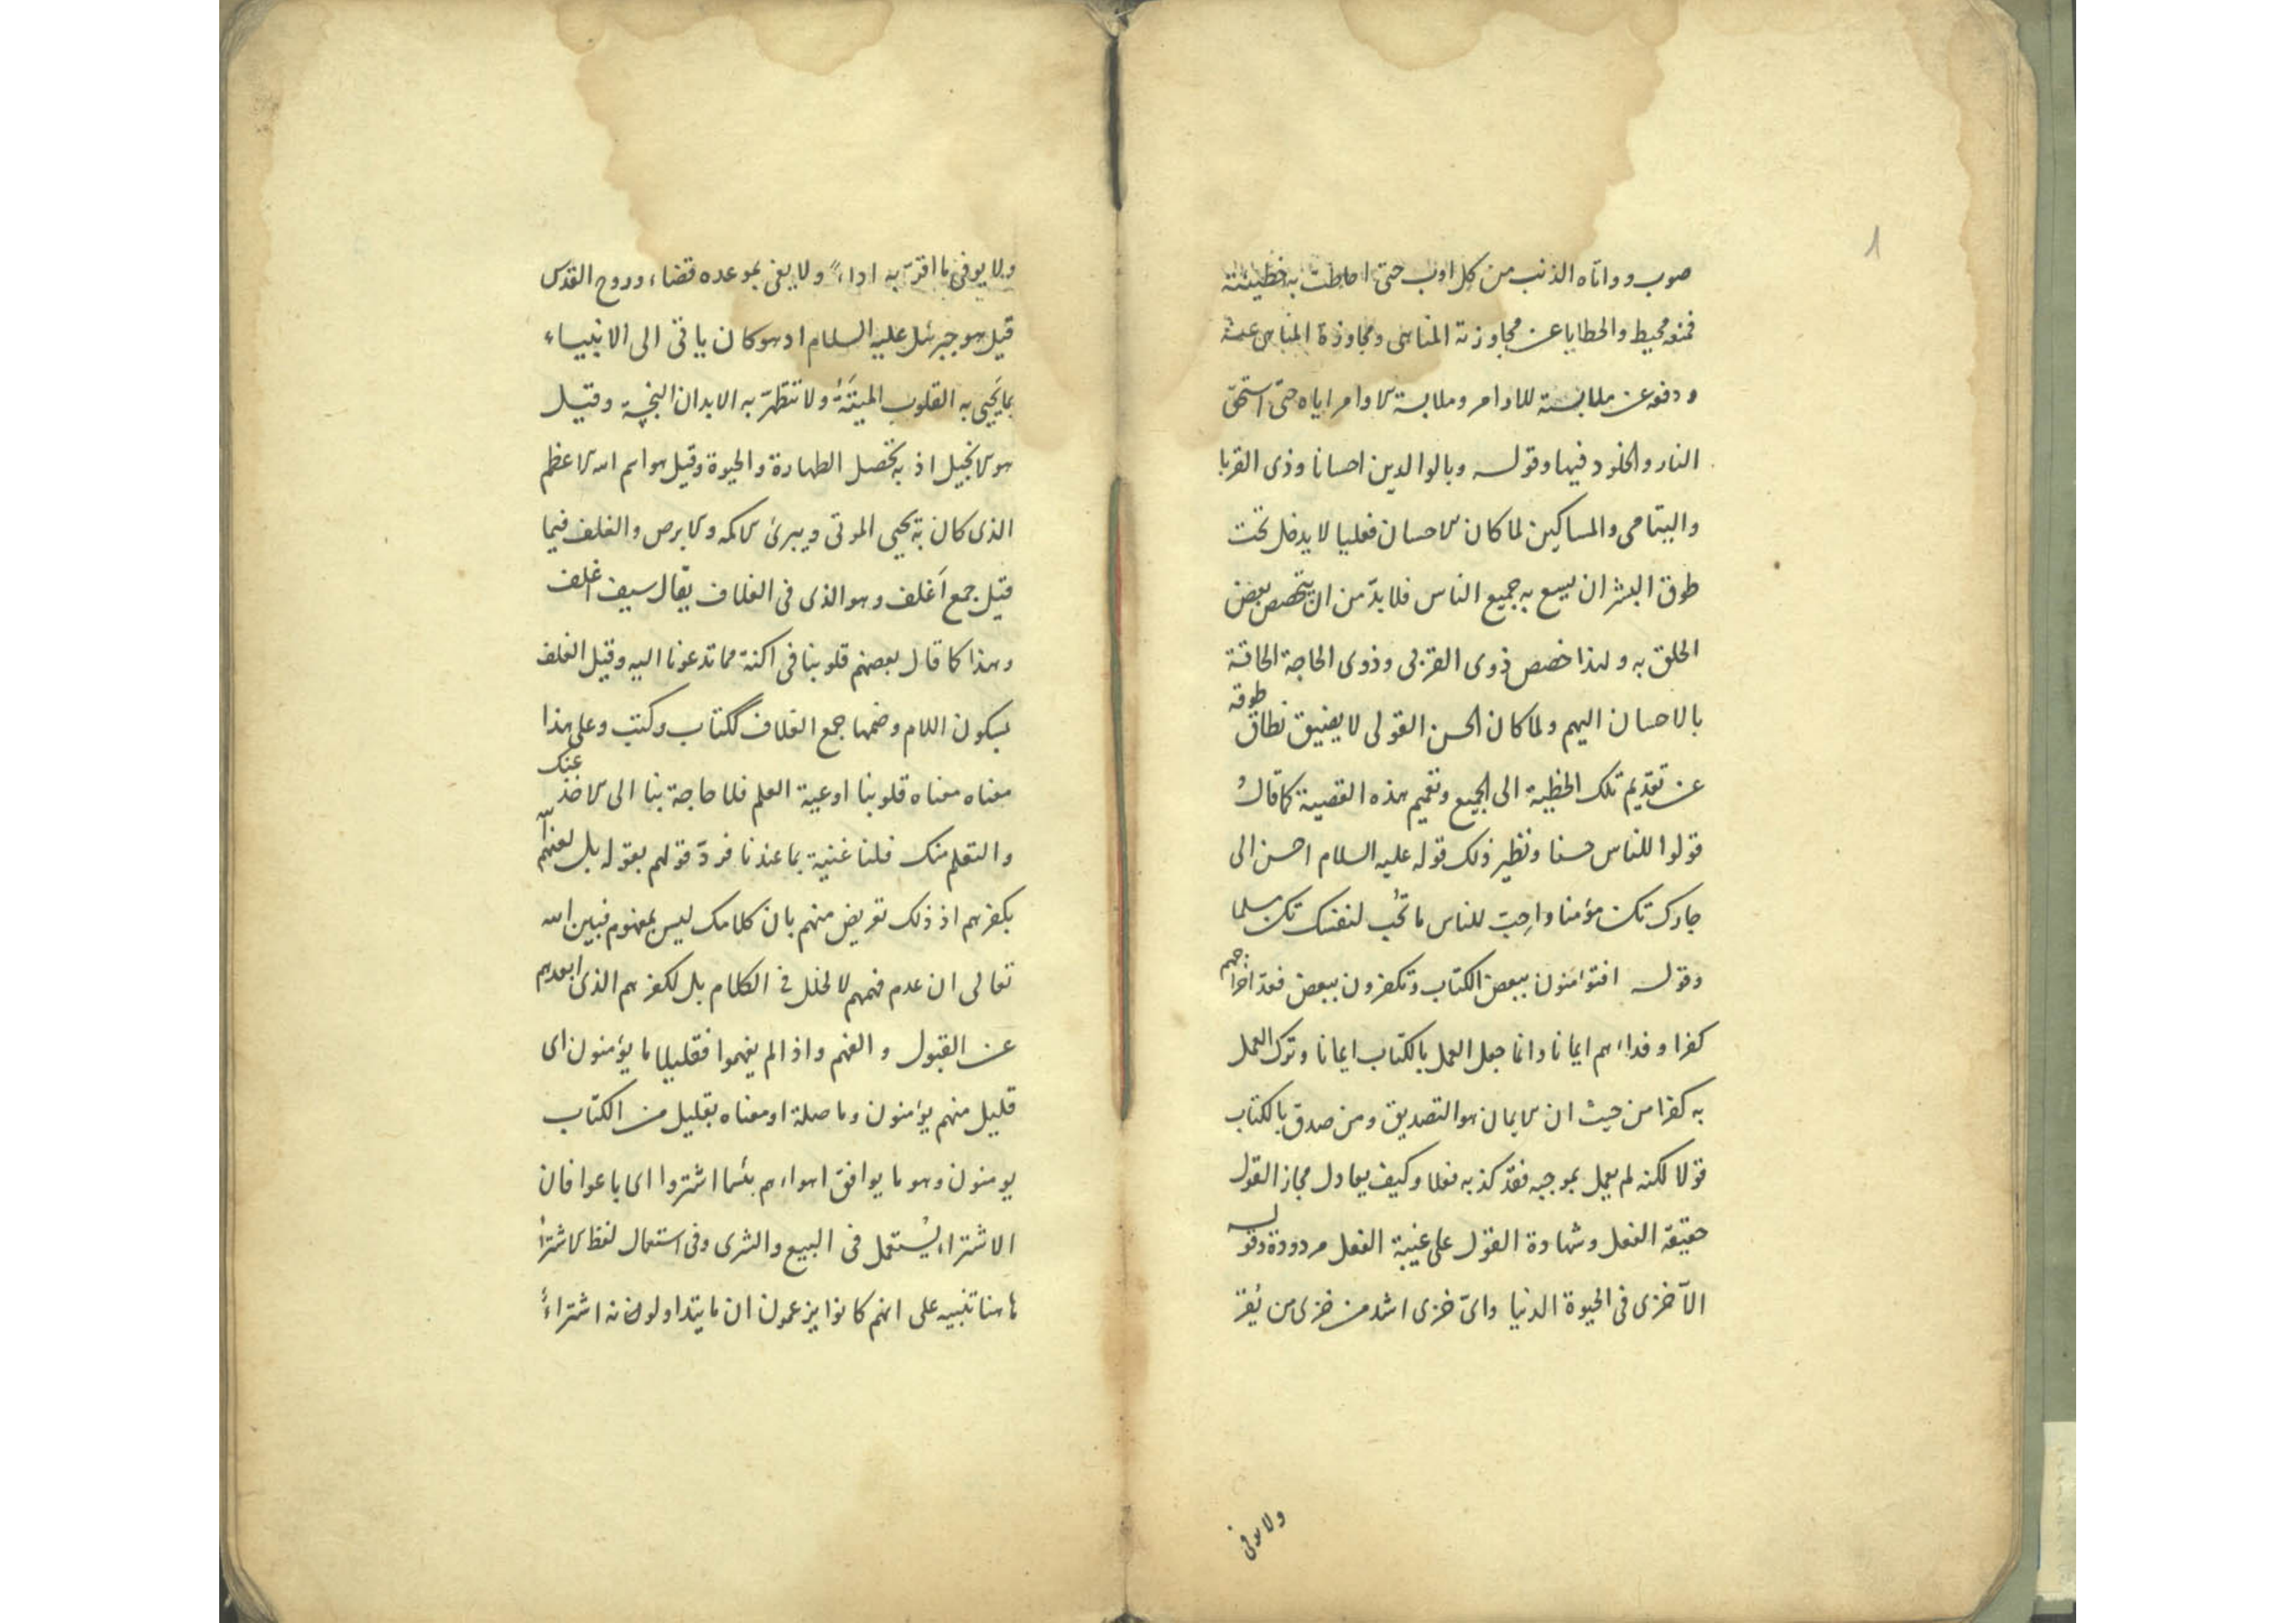 ١
صوب وواتاه الذنب من كل اوب حتى احاطت به خطيئته
فمنعه محيط والخطايا عن مجاوزته المناهى ومجاوزة المناهى عنه
ودفعه عن ملابسته للاوامر وملابسة الاوامر اياه حتى استحق
النار والخلود فيها وقوله وبالوالدين احسانا وذى القربا
واليتامى والمساكين لما كان الاحسان فعليا لا يدخل تحت
طوق البشر ان يسع به جميع الناس فلا بدّ من ان يتخصص بعض
الخلق به ولهذا خصص ذوى القربى وذوى الحاجة الحاقة
بالاحسان اليهم ولما كان الحسن القولى لا يضيق نطاق طوقه
عن تقديم تلك الخطية الى الجميع وتعميم هذه القضية كما قال
قولوا للناس حسنا ونظير ذلك قوله عليه السلام احسن الى
جارك تكن مؤمنا واحبّ للناس ما تحب لنفسك تكن مسلما
وقوله افتؤمنون ببعض الكتاب وتكفرون ببعض فعد اخراجهم
كفرا وفداءهم ايمانا وانما جعل العمل بالكتاب ايمانا وترك العمل
به كفرا من حيث ان الايمان هو التصديق ومن صدق بالكتاب
قولا لكنه لم يعمل بموجبه فقد كذبه فعلا وكيف يعادل مجاز القول
حقيقة الفعل وشهادة القول على غيبة الفعل مردودة وقوله
الا خزى فى الحيوة الدنيا واىّ خزى اشد من خزى من يُقرّ
ولا يوفى
ولا يوفى ما اقرّ به اداءً ولا يفى بموعده قضاء وروح القدس
قيل هو جبرئيل عليه السلام اذ هو كان ياتى الى الانبياء
بما يَحيى به القلوب الميتة ولا تتطهرّ به الابدان النجسة وقيل
هو الانجيل اذ به تحصل الطهارة والحيوة وقيل هو اسم الله الاعظم
الذى كان به يحيى الموتى ويبرئ الاكمه والابرص والغلف فيما
قيل جمع اَغلف وهو الذى فى الغلاف يقال سيف اغلف
وهذا كما قال بعضهم قلوبنا فى اكنة مما تدعونا اليه وقيل الغلف
بسكون اللام وضمها جمع الغلاف ككتاب وكتب وعلى هذا
معناه معناه قلوبنا اوعية العلم فلا حاجة بنا الى الاخذ عنك
والتعلم منك فلنا غنية بما عندنا فردّ قولهم بقوله بل لعنهم الله
بكفرهم اذ ذلك تعريض منهم بان كلامك ليس بمفهوم فبين الله
تعالى ان عدم فهمهم لا لخلل فى الكلام بل لكفرهم الذى ابعدهم
عن القبول والفهم واذا لم يفهموا فقليلا ما يؤمنون اى
قليل منهم يؤمنون وما صلة او معناه بقليل من الكتاب
يومنون وهو ما يوافق اهواءهم بئسما اشتروا اى باعوا فان
الاشتراء يُستعمل فى البيع والشرى وفى استعمال لفظ الاشتراء
هاهنا تنبيه على انهم كانوا يزعمون ان ما يتداولونه اشتراءً